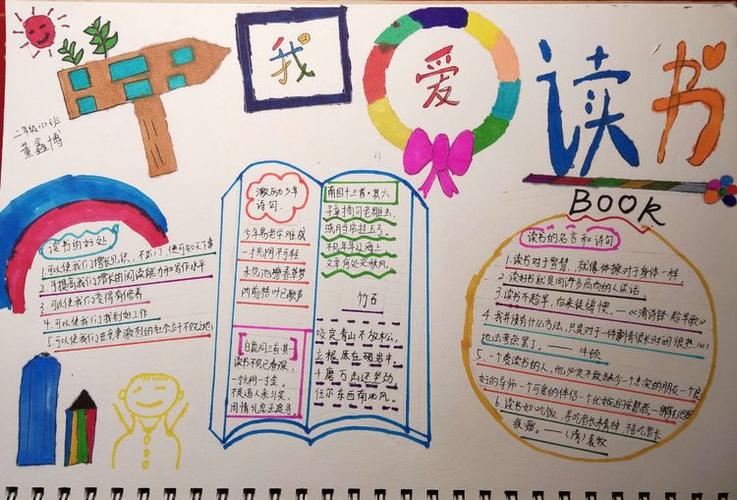 我爱读书
二年级(1)班
董鑫博
BOOK
读书的好处
1.可以使我们增长见识，不出门，便可知天下事
2.可提高我们的阅读能力和写作水平
3.可以使我们变得有修养
4.可以使我们找到好工作
5.可以使我们在竞争激烈的社会立于不败之地
激励少年
诗句
少年易老学难成
一寸光阴不可轻
未觉池塘春草梦
阶前梧叶已秋声
白鹿洞二首·其一
读书不觉已春深
一寸光阴一寸金
不是道人来引笑
周情孔思正追寻
南园十三首·其六
寻章摘句老雕虫
晓月当帘挂玉弓
不见年年辽海上
文章何处哭秋风
竹石
咬定青山不放松，
立根原在破岩中
千磨万击还坚劲
任尔东西南北风
读书的名言和诗句
1.读书对于智慧，就像体操对于身体一样。
2.读好书就是同许多高尚的人谈话
3.读书不趁早，后来徒悔懊。—《清诗铎·趁早歌》
4.我并没有什么方法，只是对于一件事情很长时间很热心
地去考虑罢了。——牛顿
5.一个爱读书的人，他必定不致缺少一个忠实的朋友一个良
好的导师一个可爱的伴侣一个优婉的安慰者
6.读书如吃饭，善吃者长精神，不善吃者长
痰瘤。——(清)袁枚